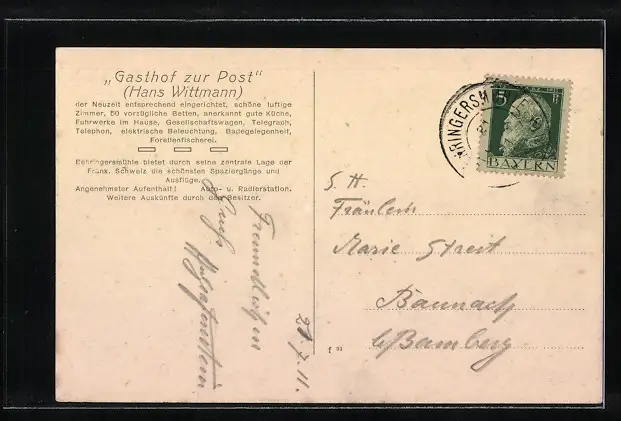 „Gasthof zur Post“
(Hans Wittmann)
der Neuzeit entsprechend eingerichtet, schöne luftige
Zimmer, 50 vorzügliche Betten, anerkannt gute Küche,
Fuhrwerke im Hause, Gesellschaftswagen, Telegraph,
Telephon, elektrische Beleuchtung, Badegelegenheit,
Forellenfischerei.
Behringersmühle bietet durch seine zentrale Lage der
Fränk. Schweiz die schönsten Spaziergänge und
Ausflüge.
Angenehmster Aufenthalt! Auto- u. Radlerstation.
Weitere Auskünfte durch den Besitzer.
Freundlichen
Gruß
21.7.11.
5
BAYERN
S. H.
Fräulein
Marie Streit
Baunach
b/Bamberg